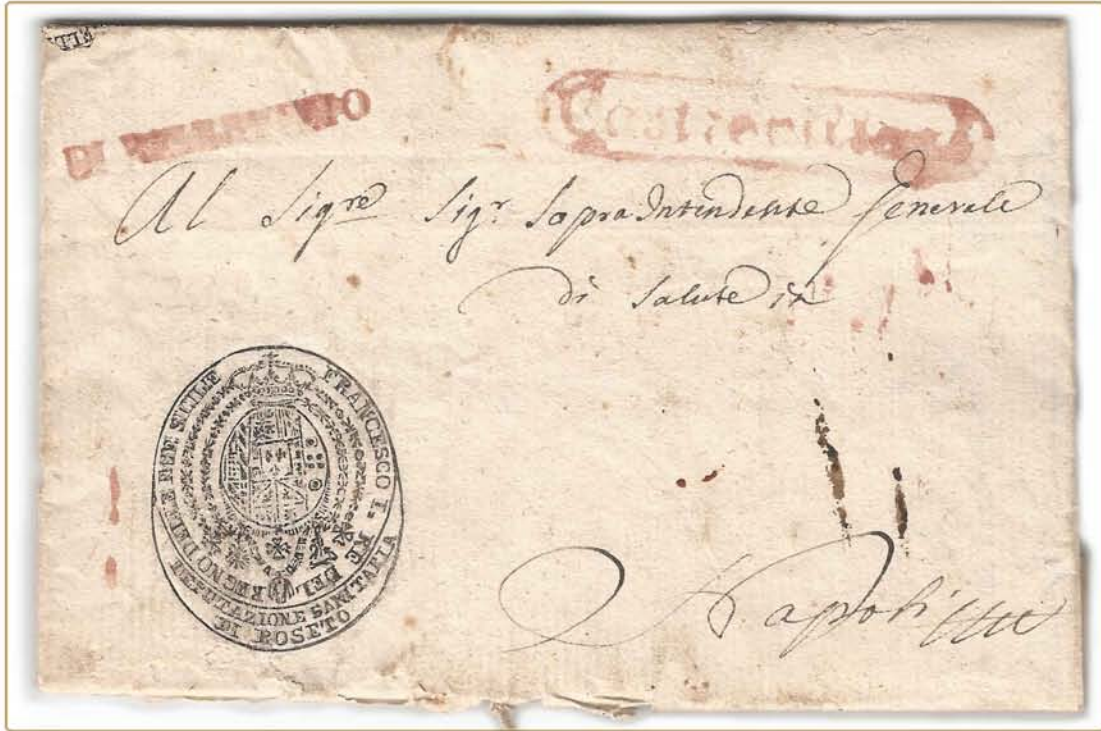 DI
Castrovillari
Al Sig.re Sig.r Sopra Intendente Generale
di Salute in
Napoli
FRANCESCO I. RE DEL REGNO DELLE DUE SICILIE
DEPUTAZIONE SANITARIA
DI ROSETO